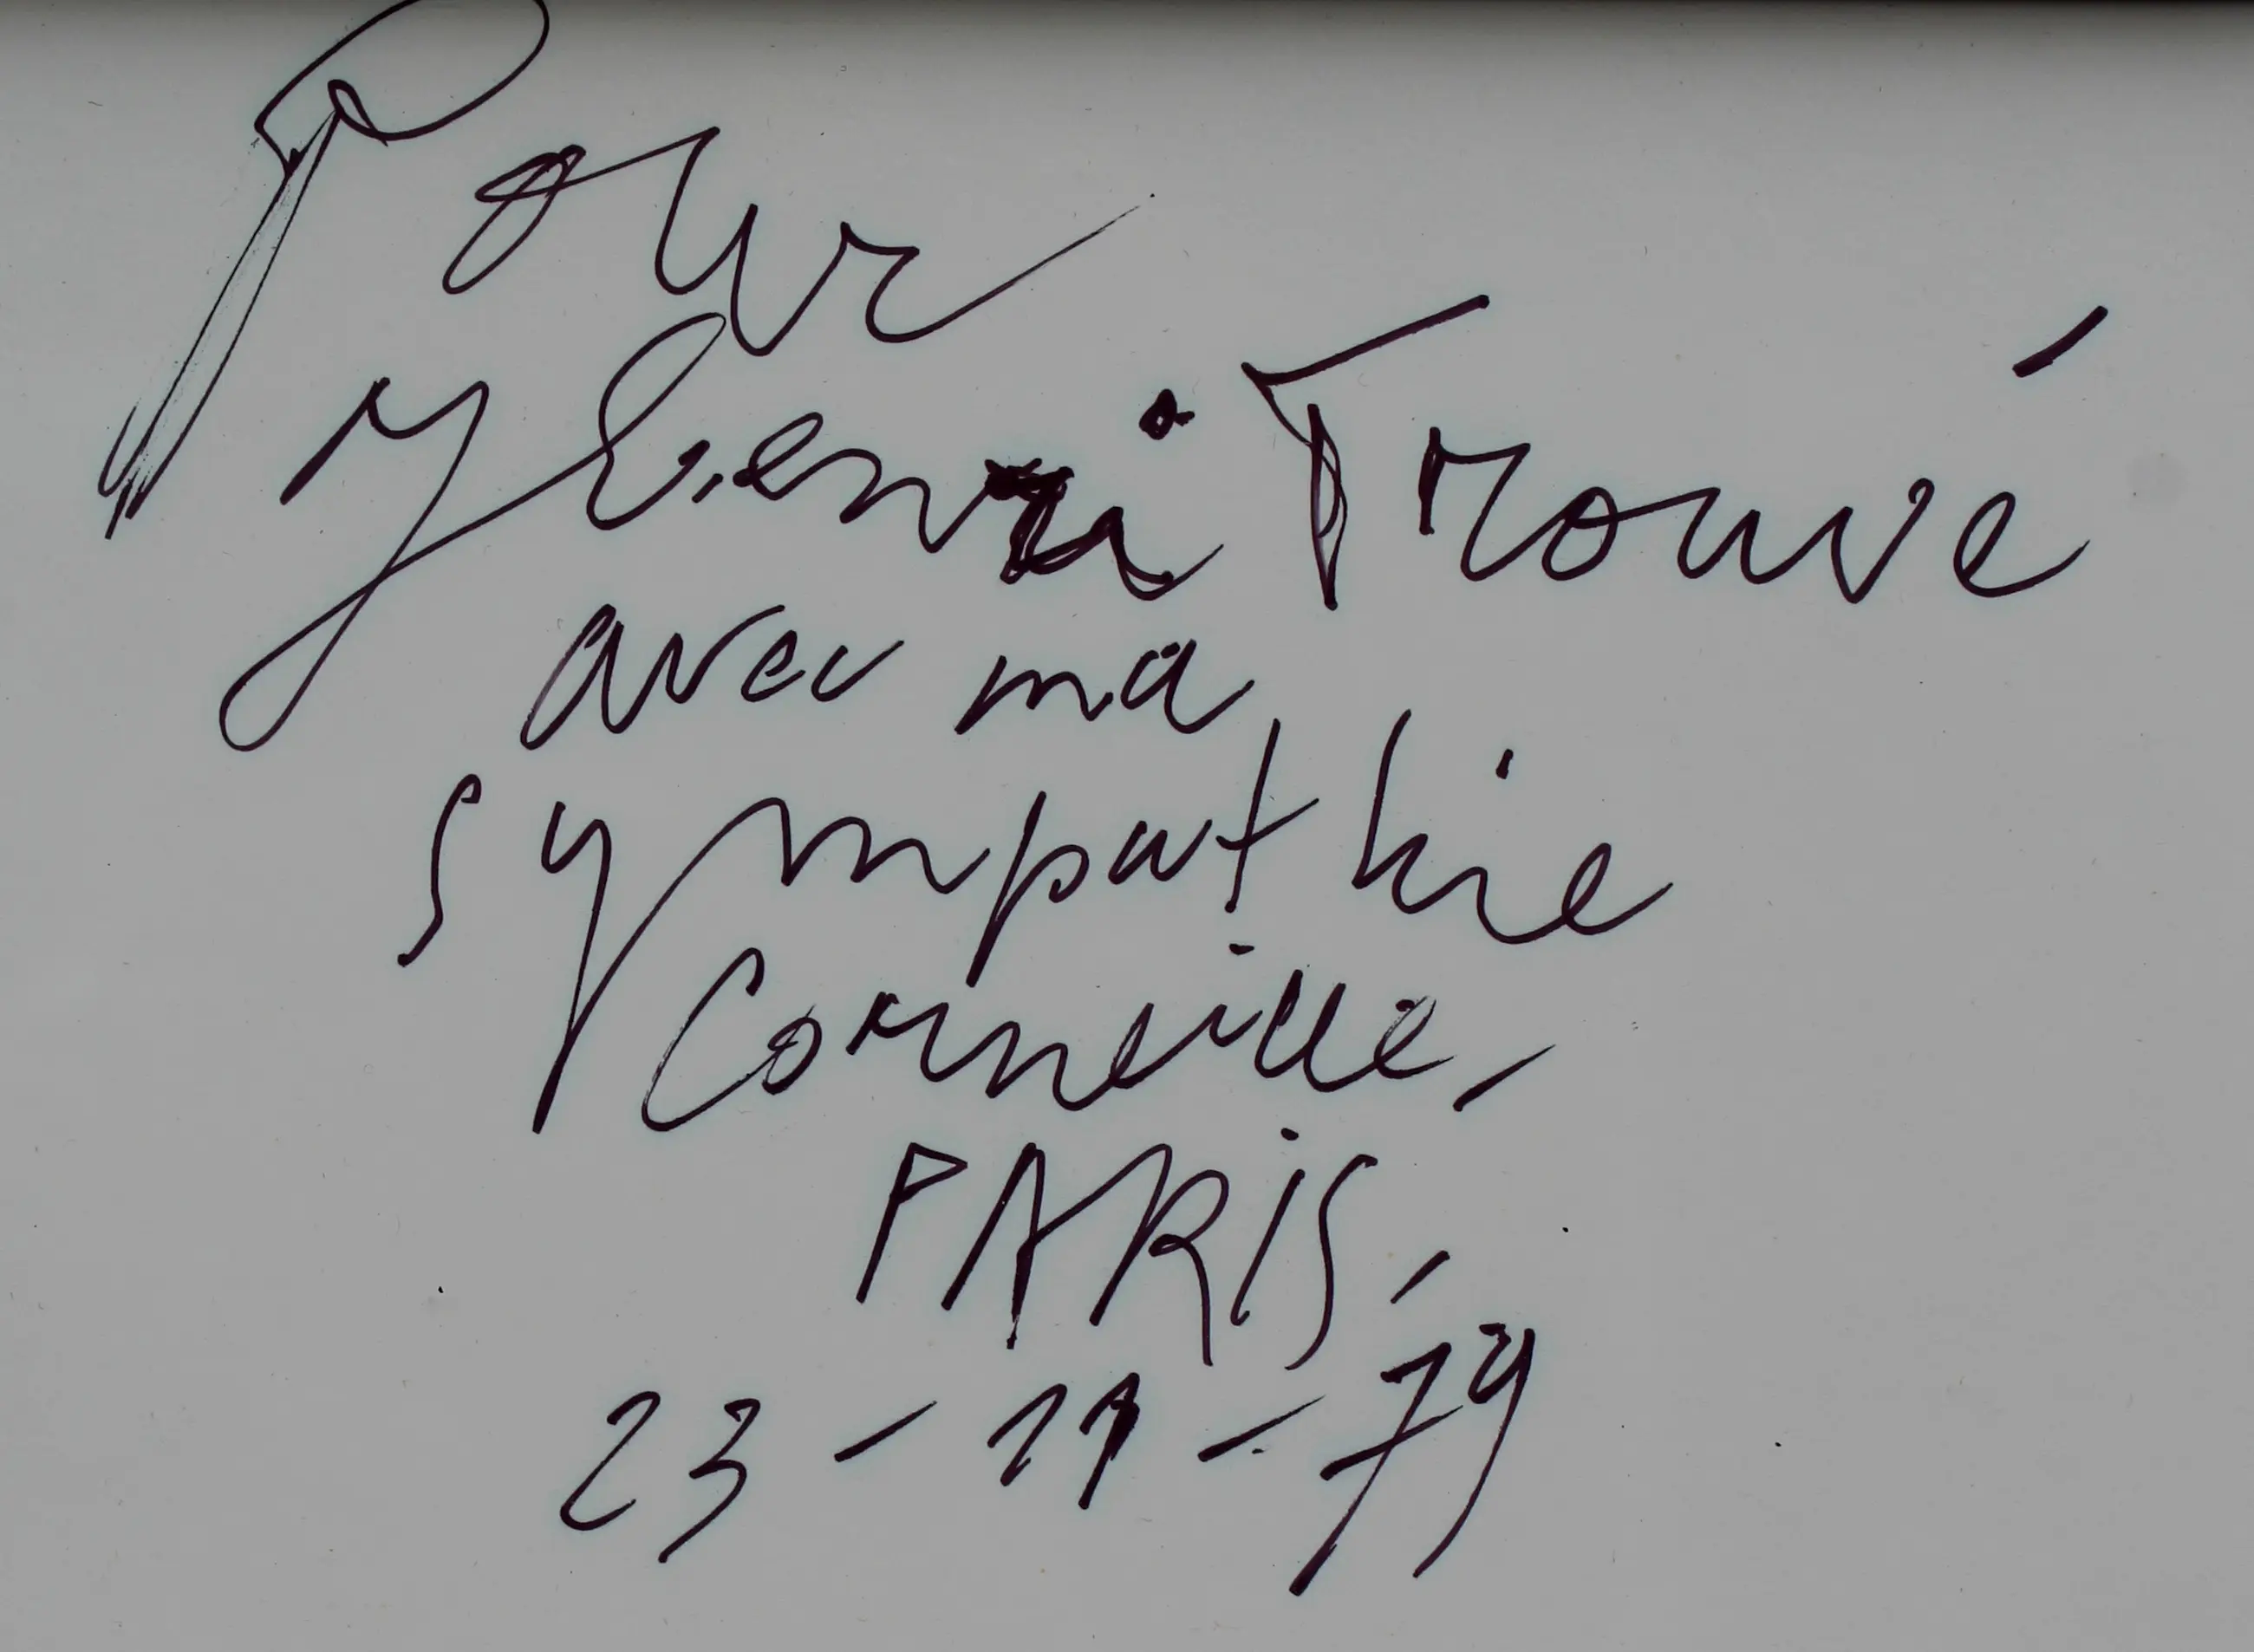 Pour
Henri Trouvé
avec ma
sympathie
Corneille.
PARIS,
23-11-79